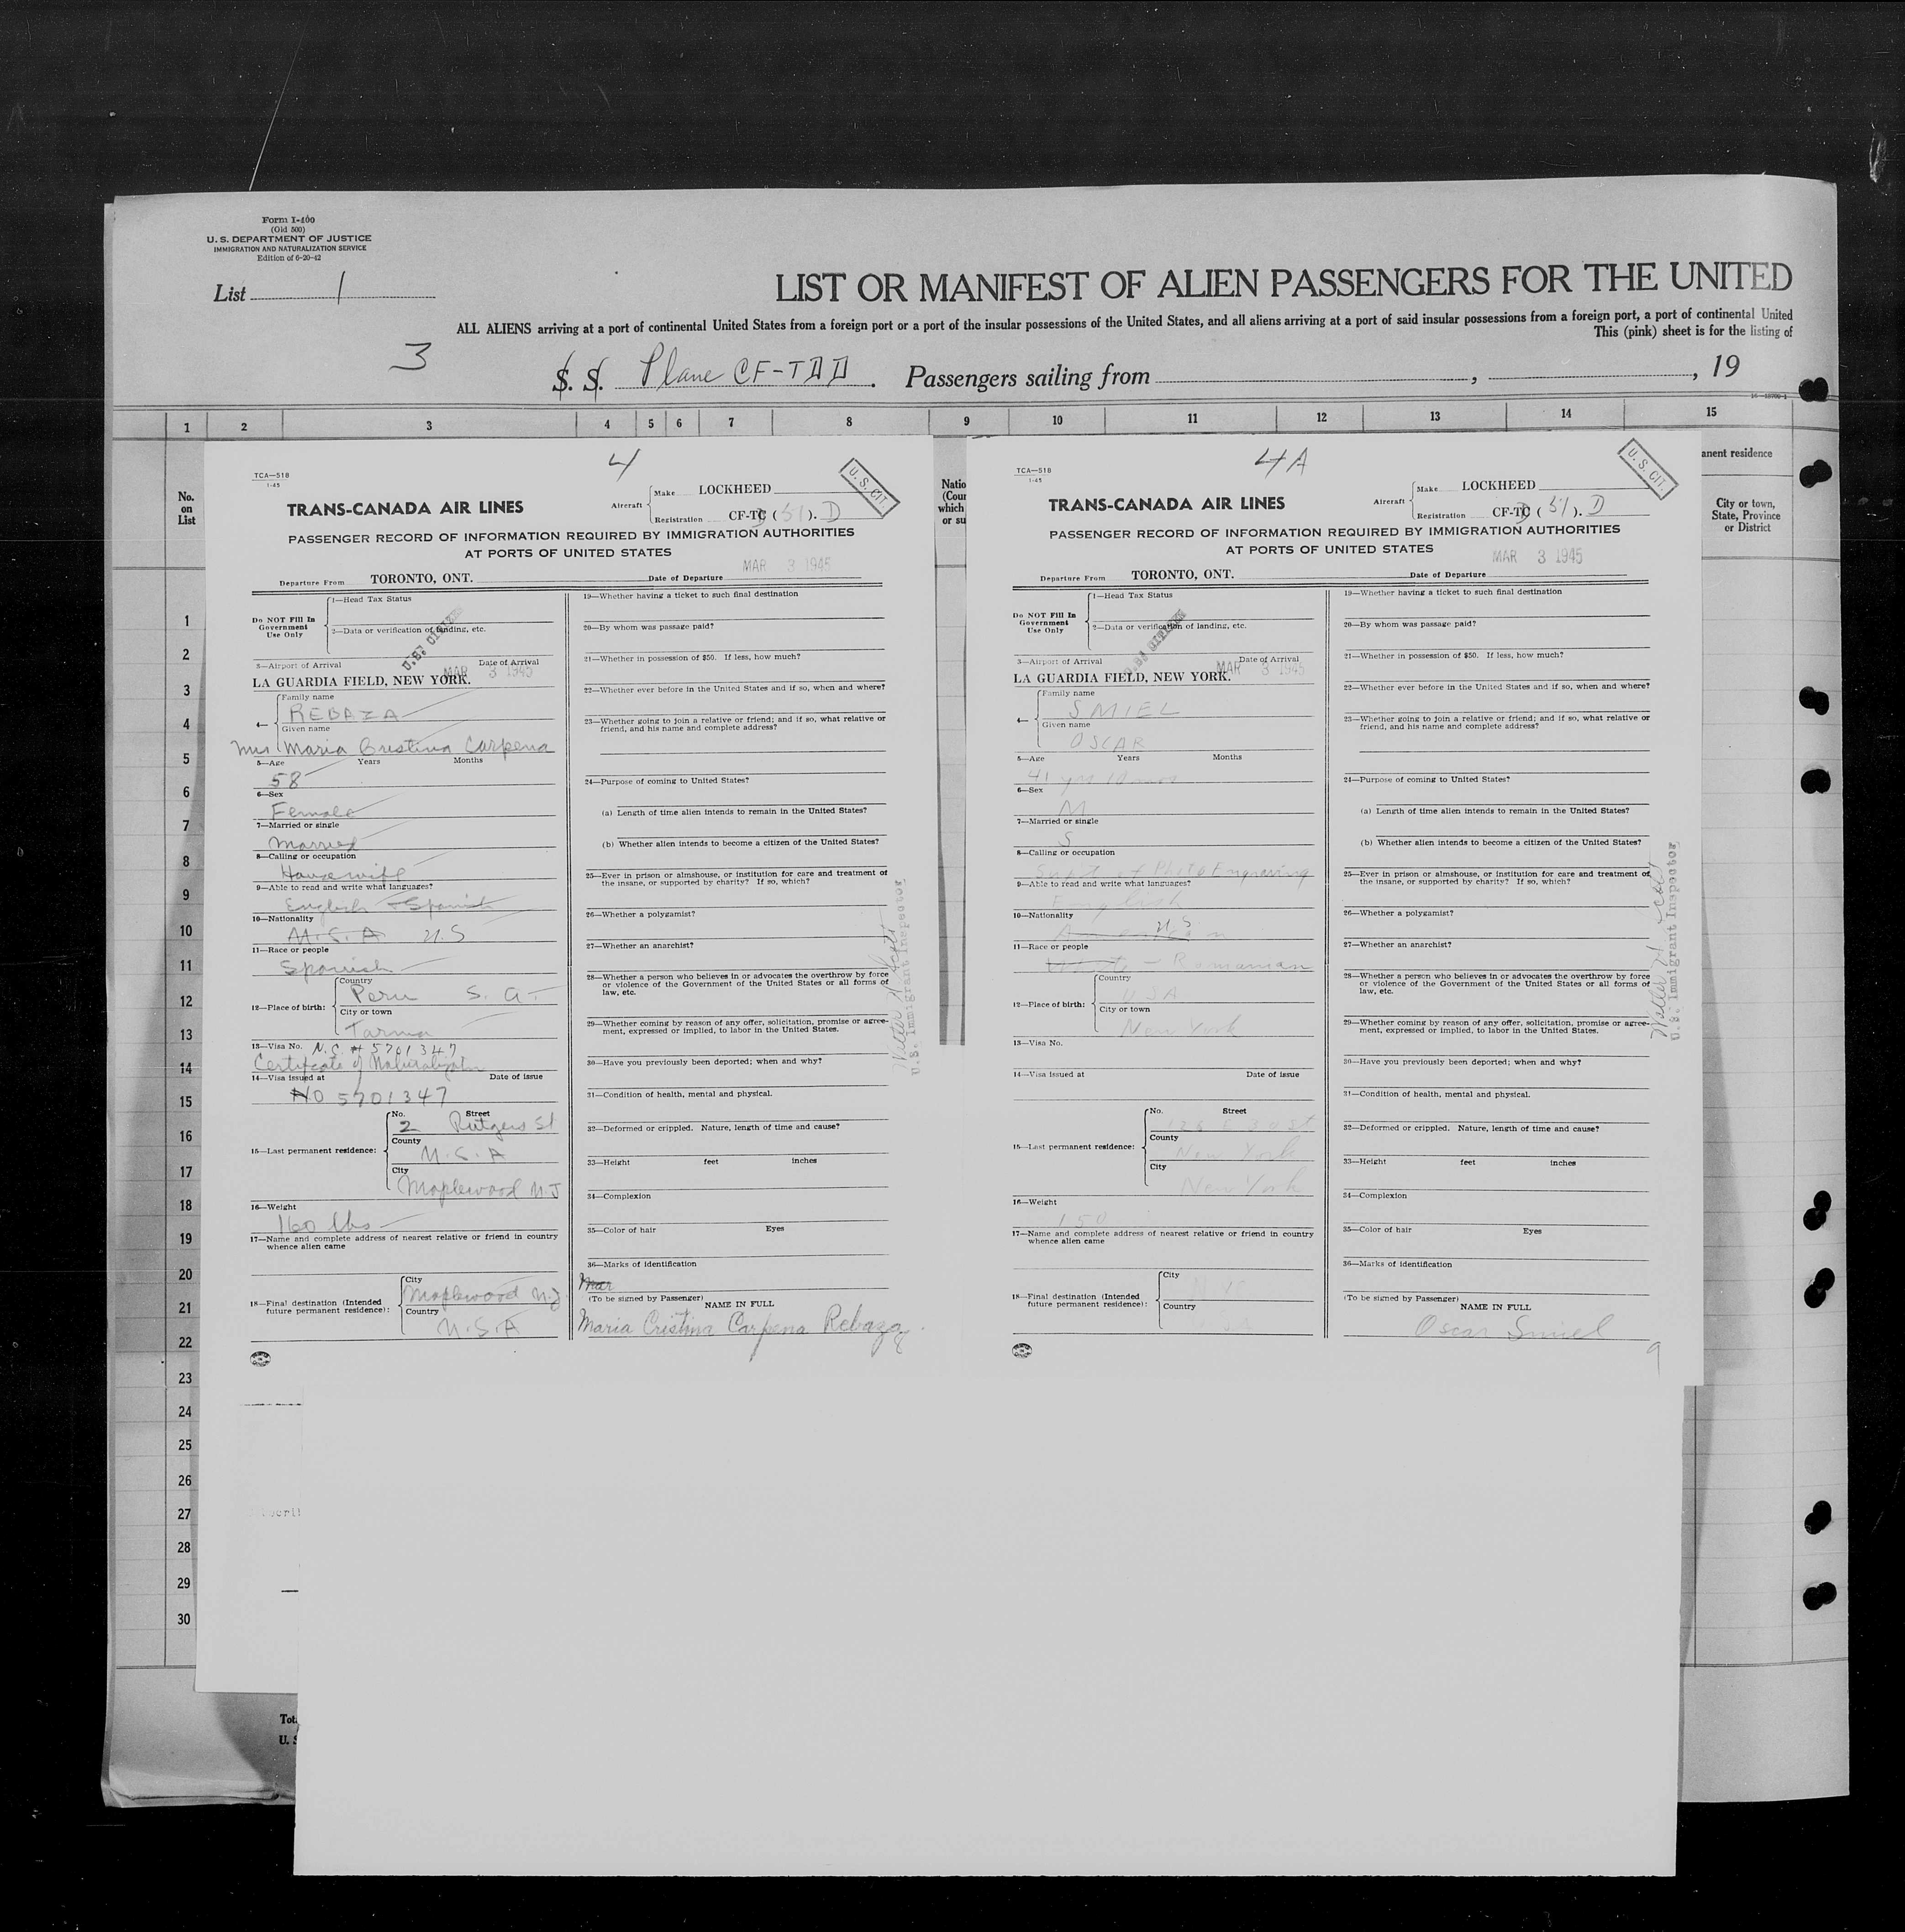 Form I-400
(Old 500)
U. S. DEPARTMENT OF JUSTICE
IMMIGRATION AND NATURALIZATION SERVICE
Edition of 6-20-42
List 1
LIST OR MANIFEST OF ALIEN PASSENGERS FOR THE UNITED
ALL ALIENS arriving at a port of continental United States from a foreign port or a port of the insular possessions of the United States, and all aliens arriving at a port of said insular possessions from a foreign port, a port of continental United
This (pink) sheet is for the listing of
3
S. S. Plane CF-TDD. Passengers sailing from , , 19
1 2 3 4 5 6 7 8 9 10 11 12 13 14 15
No.
on
List
Natio
(Coun
which
or su
anent residence
City or town,
State, Province
or District
1
2
3
4
5
6
7
8
9
10
11
12
13
14
15
16
17
18
19
20
21
22
23
24
25
26
27
28
29
30
Tot
U. S
4
TCA—518
1-45
U. S. CIT.
TRANS-CANADA AIR LINES
Aircraft
Make LOCKHEED
Registration CF-TC (51). D
PASSENGER RECORD OF INFORMATION REQUIRED BY IMMIGRATION AUTHORITIES
AT PORTS OF UNITED STATES
MAR 3 1945
Departure From TORONTO, ONT. Date of Departure
Do NOT Fill In
Government
Use Only
1—Head Tax Status
2—Data or verification of landing, etc.
U.S. CITIZEN
3—Airport of Arrival Date of Arrival
LA GUARDIA FIELD, NEW YORK. MAR 3 1945
4—
Family name
REBAZA
Given name
Mrs Maria Cristina Carpena
5—Age Years Months
58
6—Sex
Female
7—Married or single
Married
8—Calling or occupation
Housewife
9—Able to read and write what languages?
English - Spanish
10—Nationality
U.S.A U.S
11—Race or people
Spanish
12—Place of birth:
Country
Peru S. A.
City or town
Tarma
13—Visa No. N.C. # 5701347
Certificate of Naturalization
14—Visa issued at Date of issue
No 5701347
15—Last permanent residence:
No. Street
2 Rutgers St
County
U.S.A
City
Maplewood N.J
16—Weight
160 lbs
17—Name and complete address of nearest relative or friend in country
whence alien came
18—Final destination (Intended
future permanent residence):
City
Maplewood N.J
Country
U.S.A
19—Whether having a ticket to such final destination
20—By whom was passage paid?
21—Whether in possession of $50. If less, how much?
22—Whether ever before in the United States and if so, when and where?
23—Whether going to join a relative or friend; and if so, what relative or
friend, and his name and complete address?
24—Purpose of coming to United States?
(a) Length of time alien intends to remain in the United States?
(b) Whether alien intends to become a citizen of the United States?
25—Ever in prison or almshouse, or institution for care and treatment of
the insane, or supported by charity? If so, which?
26—Whether a polygamist?
27—Whether an anarchist?
28—Whether a person who believes in or advocates the overthrow by force
or violence of the Government of the United States or all forms of
law, etc.
29—Whether coming by reason of any offer, solicitation, promise or agree-
ment, expressed or implied, to labor in the United States.
30—Have you previously been deported; when and why?
31—Condition of health, mental and physical.
32—Deformed or crippled. Nature, length of time and cause?
33—Height feet inches
34—Complexion
35—Color of hair Eyes
36—Marks of identification
Mar
(To be signed by Passenger)
NAME IN FULL
Maria Cristina Carpena Rebaza
8
U.S. Immigrant Inspector
4A
TCA—518
1-45
U. S. CIT.
TRANS-CANADA AIR LINES
Aircraft
Make LOCKHEED
Registration CF-TC (51). D
PASSENGER RECORD OF INFORMATION REQUIRED BY IMMIGRATION AUTHORITIES
AT PORTS OF UNITED STATES
MAR 3 1945
Departure From TORONTO, ONT. Date of Departure
Do NOT Fill In
Government
Use Only
1—Head Tax Status
2—Data or verification of landing, etc.
U.S. CITIZEN
3—Airport of Arrival Date of Arrival
LA GUARDIA FIELD, NEW YORK. MAR 3 1945
4—
Family name
SMIEL
Given name
OSCAR
5—Age Years Months
41 yrs 10 mos
6—Sex
M
7—Married or single
S
8—Calling or occupation
Supt of PhotoEngraving
9—Able to read and write what languages?
English
10—Nationality
American U.S.
11—Race or people
White - Romanian
12—Place of birth:
Country
USA
City or town
New York
13—Visa No.
14—Visa issued at Date of issue
15—Last permanent residence:
No. Street
St
County
New York
City
New York
16—Weight
150
17—Name and complete address of nearest relative or friend in country
whence alien came
18—Final destination (Intended
future permanent residence):
City
N.Y.
Country
USA
19—Whether having a ticket to such final destination
20—By whom was passage paid?
21—Whether in possession of $50. If less, how much?
22—Whether ever before in the United States and if so, when and where?
23—Whether going to join a relative or friend; and if so, what relative or
friend, and his name and complete address?
24—Purpose of coming to United States?
(a) Length of time alien intends to remain in the United States?
(b) Whether alien intends to become a citizen of the United States?
25—Ever in prison or almshouse, or institution for care and treatment of
the insane, or supported by charity? If so, which?
26—Whether a polygamist?
27—Whether an anarchist?
28—Whether a person who believes in or advocates the overthrow by force
or violence of the Government of the United States or all forms of
law, etc.
29—Whether coming by reason of any offer, solicitation, promise or agree-
ment, expressed or implied, to labor in the United States.
30—Have you previously been deported; when and why?
31—Condition of health, mental and physical.
32—Deformed or crippled. Nature, length of time and cause?
33—Height feet inches
34—Complexion
35—Color of hair Eyes
36—Marks of identification
(To be signed by Passenger)
NAME IN FULL
Oscar Smiel
9
U.S. Immigrant Inspector